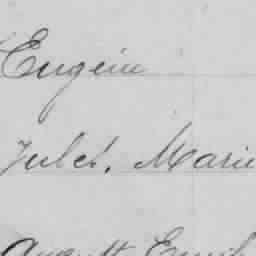 Eugénie
Jules, Marie
August Emil